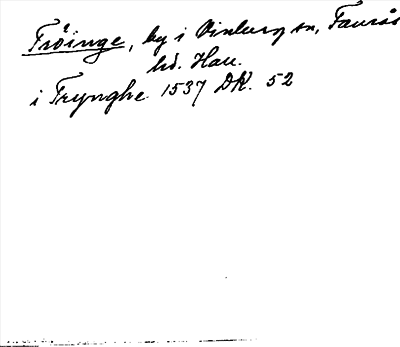 Fröinge, by i Vinberg sn, Faurås
hd. Hall.
i Frynghe 1537 DK. 52